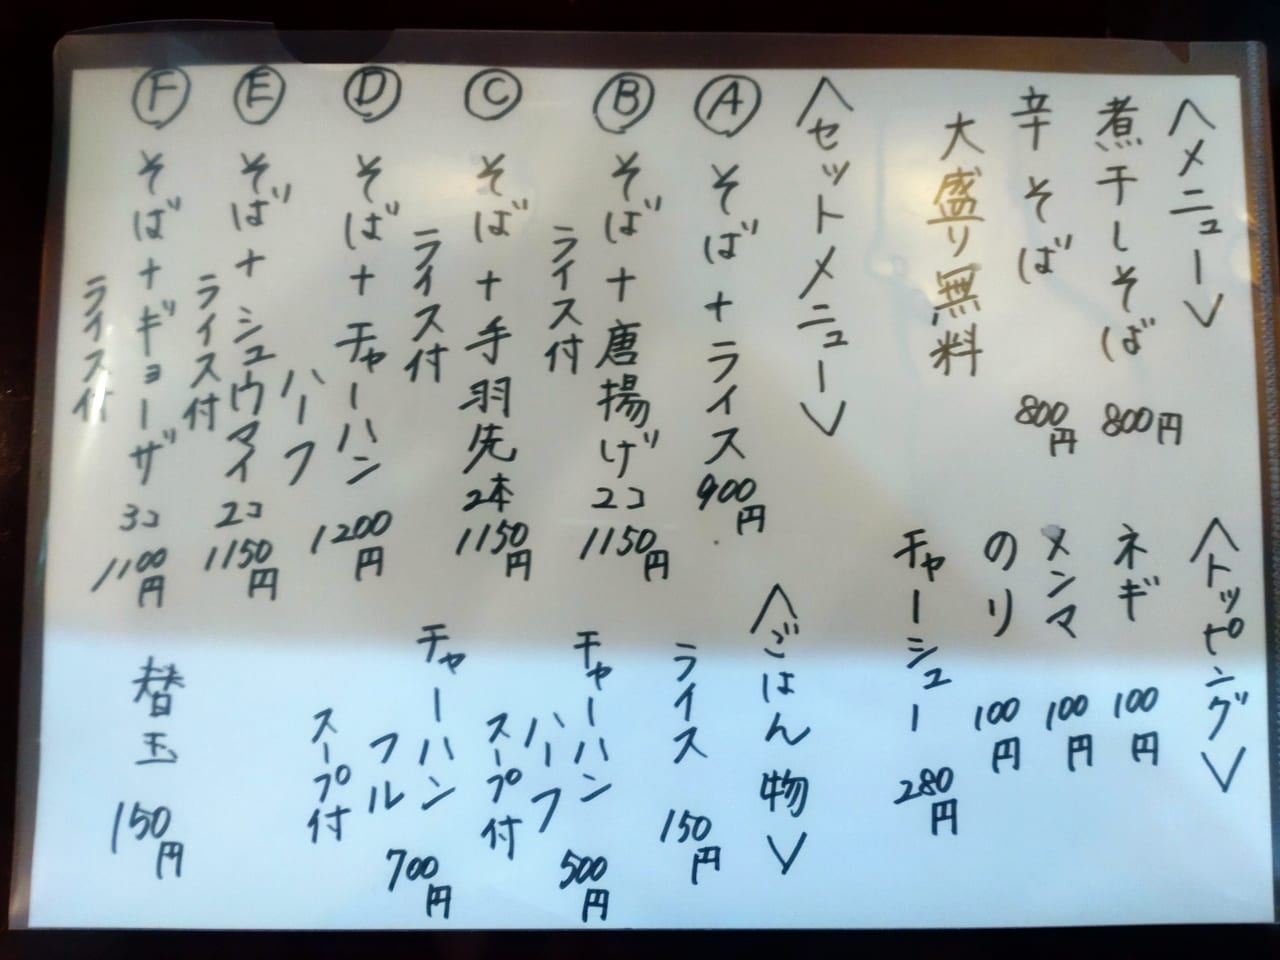 <メニュー>
煮干しそば 800円
辛そば 800円
大盛り無料
<トッピング>
ネギ 100円
メンマ 100円
のり 100円
チャーシュー 280円
<セットメニュー>
Ⓐ そば+ライス 900円
Ⓑ そば+唐揚げ 2コ 1150円
ライス付
Ⓒ そば+手羽先 2本 1150円
ライス付
Ⓓ そば+チャーハン 1200円
ハーフ
Ⓔ そば+シュウマイ 2コ 1150円
ライス付
Ⓕ そば+ギョーザ 3コ 1100円
ライス付
<ごはん物>
ライス 150円
チャーハン 500円
ハーフ
スープ付
チャーハン 700円
フル
スープ付
替玉 150円